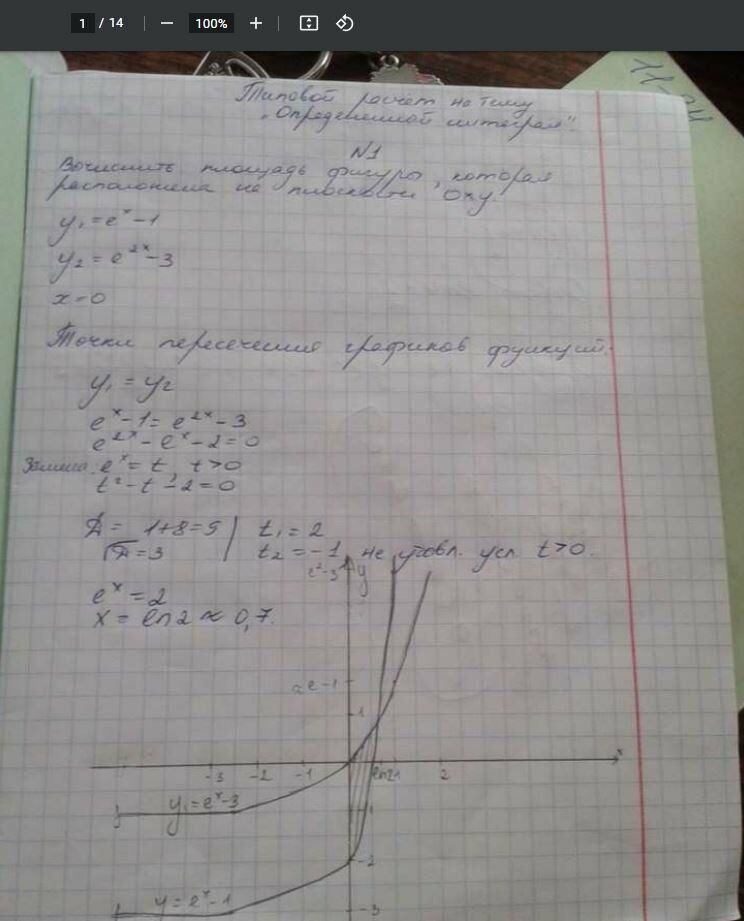 1 / 14 100%
Типовой расчет на тему
"Определенный интеграл".
N1
Вычислить площадь фигуры, которая
расположена на плоскости Oxy.
y₁=eˣ-1
y₂=e²ˣ-3
x=0
Точки пересечения графиков функций:
y₁=y₂
eˣ-1=e²ˣ-3
e²ˣ-eˣ-2=0
Замена: eˣ=t, t>0
t²-t-2=0
Д= 1+8=9 | t₁=2
√Д=3 | t₂=-1 не удовл. усл. t>0.
eˣ=2
x=ln2≈0,7.
e²-3 y
≈e-1
1
x
-3 -2 -1 ln2 1 2
y₁=eˣ-3
-1
-2
y=2ˣ-1
-3